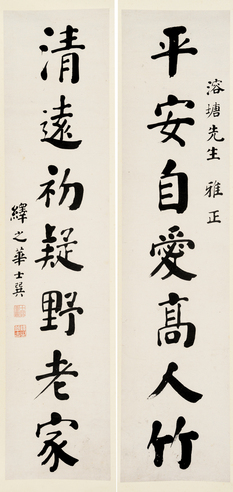 溶塘先生 雅正
平安自愛高人竹
清遠初疑野老家
繹之華士巽